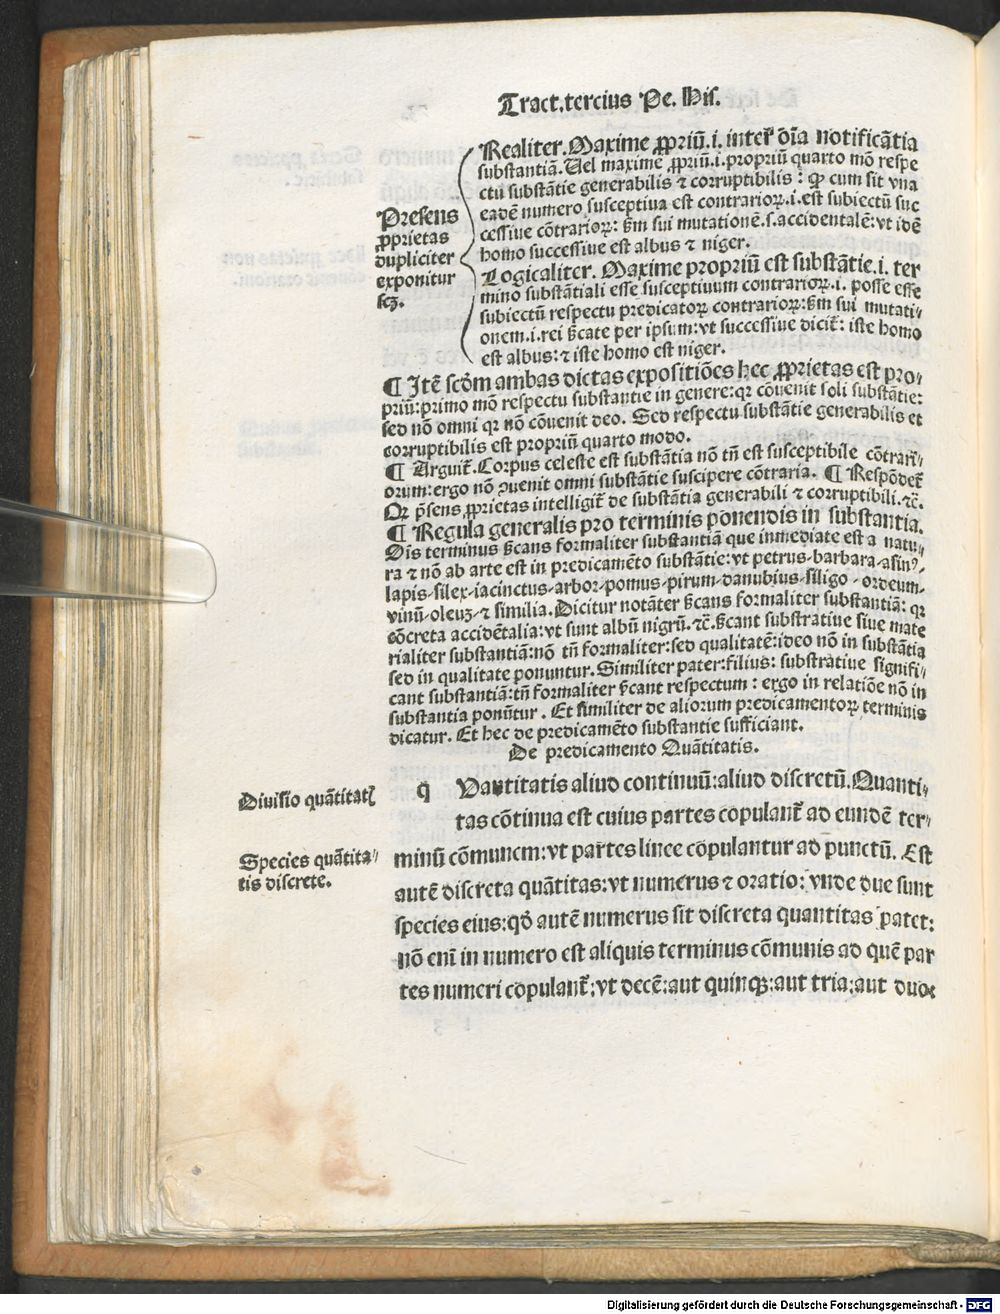 Tract.tercius Pe. His.
Presens
ꝓprietas
dupliciter
exponitur
scꝫ.
Realiter. Maxime ꝓpriū.i. inter oīa notificātia
substantiā. Uel maxime ꝓpriū.i. propriū quarto mō respe
ctu substātie generabilis ⁊ corruptibilis: ꝙ cum sit vna
eadē numero susceptiua est contrarioꝝ.i. est subiectū suc
cessiue cōtrarioꝝ: ẜm sui mutationē.s. accidentalē: vt idē
homo successiue est albus ⁊ niger.
Logicaliter. Maxime propriū est substātie.i. ter
mino substātiali esse susceptiuum contrarioꝝ.i. posse esse
subiectū respectu predicatoꝝ contrarioꝝ: ẜm sui mutati⸗
onem.i. rei ẜcate per ipsum: vt successiue dicit̄: iste homo
est albus: ⁊ iste homo est niger.
¶ Itē scōm ambas dictas expositiōes hec ꝓprietas est pro⸗
priū: primo mō respectu substantie in genere: qꝛ cōuenit soli substātie:
sed nō omni qꝛ nō cōuenit deo. Sed respectu substātie generabilis et
corruptibilis est propriū quarto modo.
¶ Arguit̄. Corpus celeste est substātia nō tn̄ est susceptibile cōtrari⸗
orum: ergo nō ꝯuenit omni substātie suscipere cōtraria. ¶ Respōdet̄
Qꝛ p̄sens ꝓprietas intelligit̄ de substātia generabili ⁊ corruptibili. ⁊c̄.
¶ Regula generalis pro terminis ponendis in substantia.
Oīs terminus ẜcans formaliter substantiā que inmediate est a natu⸗
ra ⁊ nō ab arte est in predicamēto substātie: vt petrus⸗barbara⸗asinꝰ⸗
lapis⸗silex⸗iacinctus⸗arbor⸗pomus⸗pirum⸗danubius⸗siligo⸗ordeum⸗
vinū⸗oleuꝫ⸗⁊ similia. Dicitur notāter ẜcans formaliter substantiā: qꝛ
cōcreta accidētalia: vt sunt albū nigrū. ⁊c̄. ẜcant substratiue siue mate
rialiter substantiā: nō tn̄ formaliter: sed qualitatē: ideo nō in substātia
sed in qualitate ponuntur. Similiter pater: filius: substratiue signifi⸗
cant substantiā: tn̄ formaliter ẜcant respectum: ergo in relatiōe nō in
substantia ponūtur. Et similiter de aliorum predicamentoꝝ terminis
dicatur. Et hec de predicamēto substantie sufficiant.
De predicamento Quātitatis.
Diuisio quātitatꝭ
q Uantitatis aliud continuū: aliud discretū. Quanti⸗
tas cōtinua est cuius partes copulant̄ ad eundē ter⸗
Species quātita⸗
tis discrete.
minū cōmunem: vt partes linee copulantur ad punctū. Est
autē discreta quātitas: vt numerus ⁊ oratio: vnde due sunt
species eius: qđ autē numerus sit discreta quantitas patet:
nō eni in numero est aliquis terminus cōmunis ad quē par
tes numeri copulant̄: vt decē: aut quinqꝫ: aut tria: aut duo
Digitalisierung gefördert durch die Deutsche Forschungsgemeinschaft - DFG